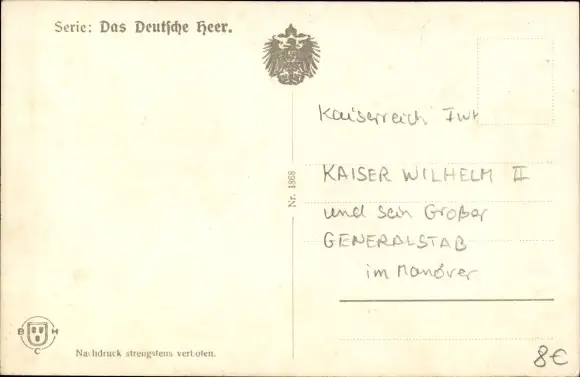 Serie: Das Deutsche Heer.
Kaiserreich
KAISER WILHELM II
und sein Großer
GENERALSTAB
im Manöver
Nr. 1868
B H
C
Nachdruck strengstens verboten.
8€